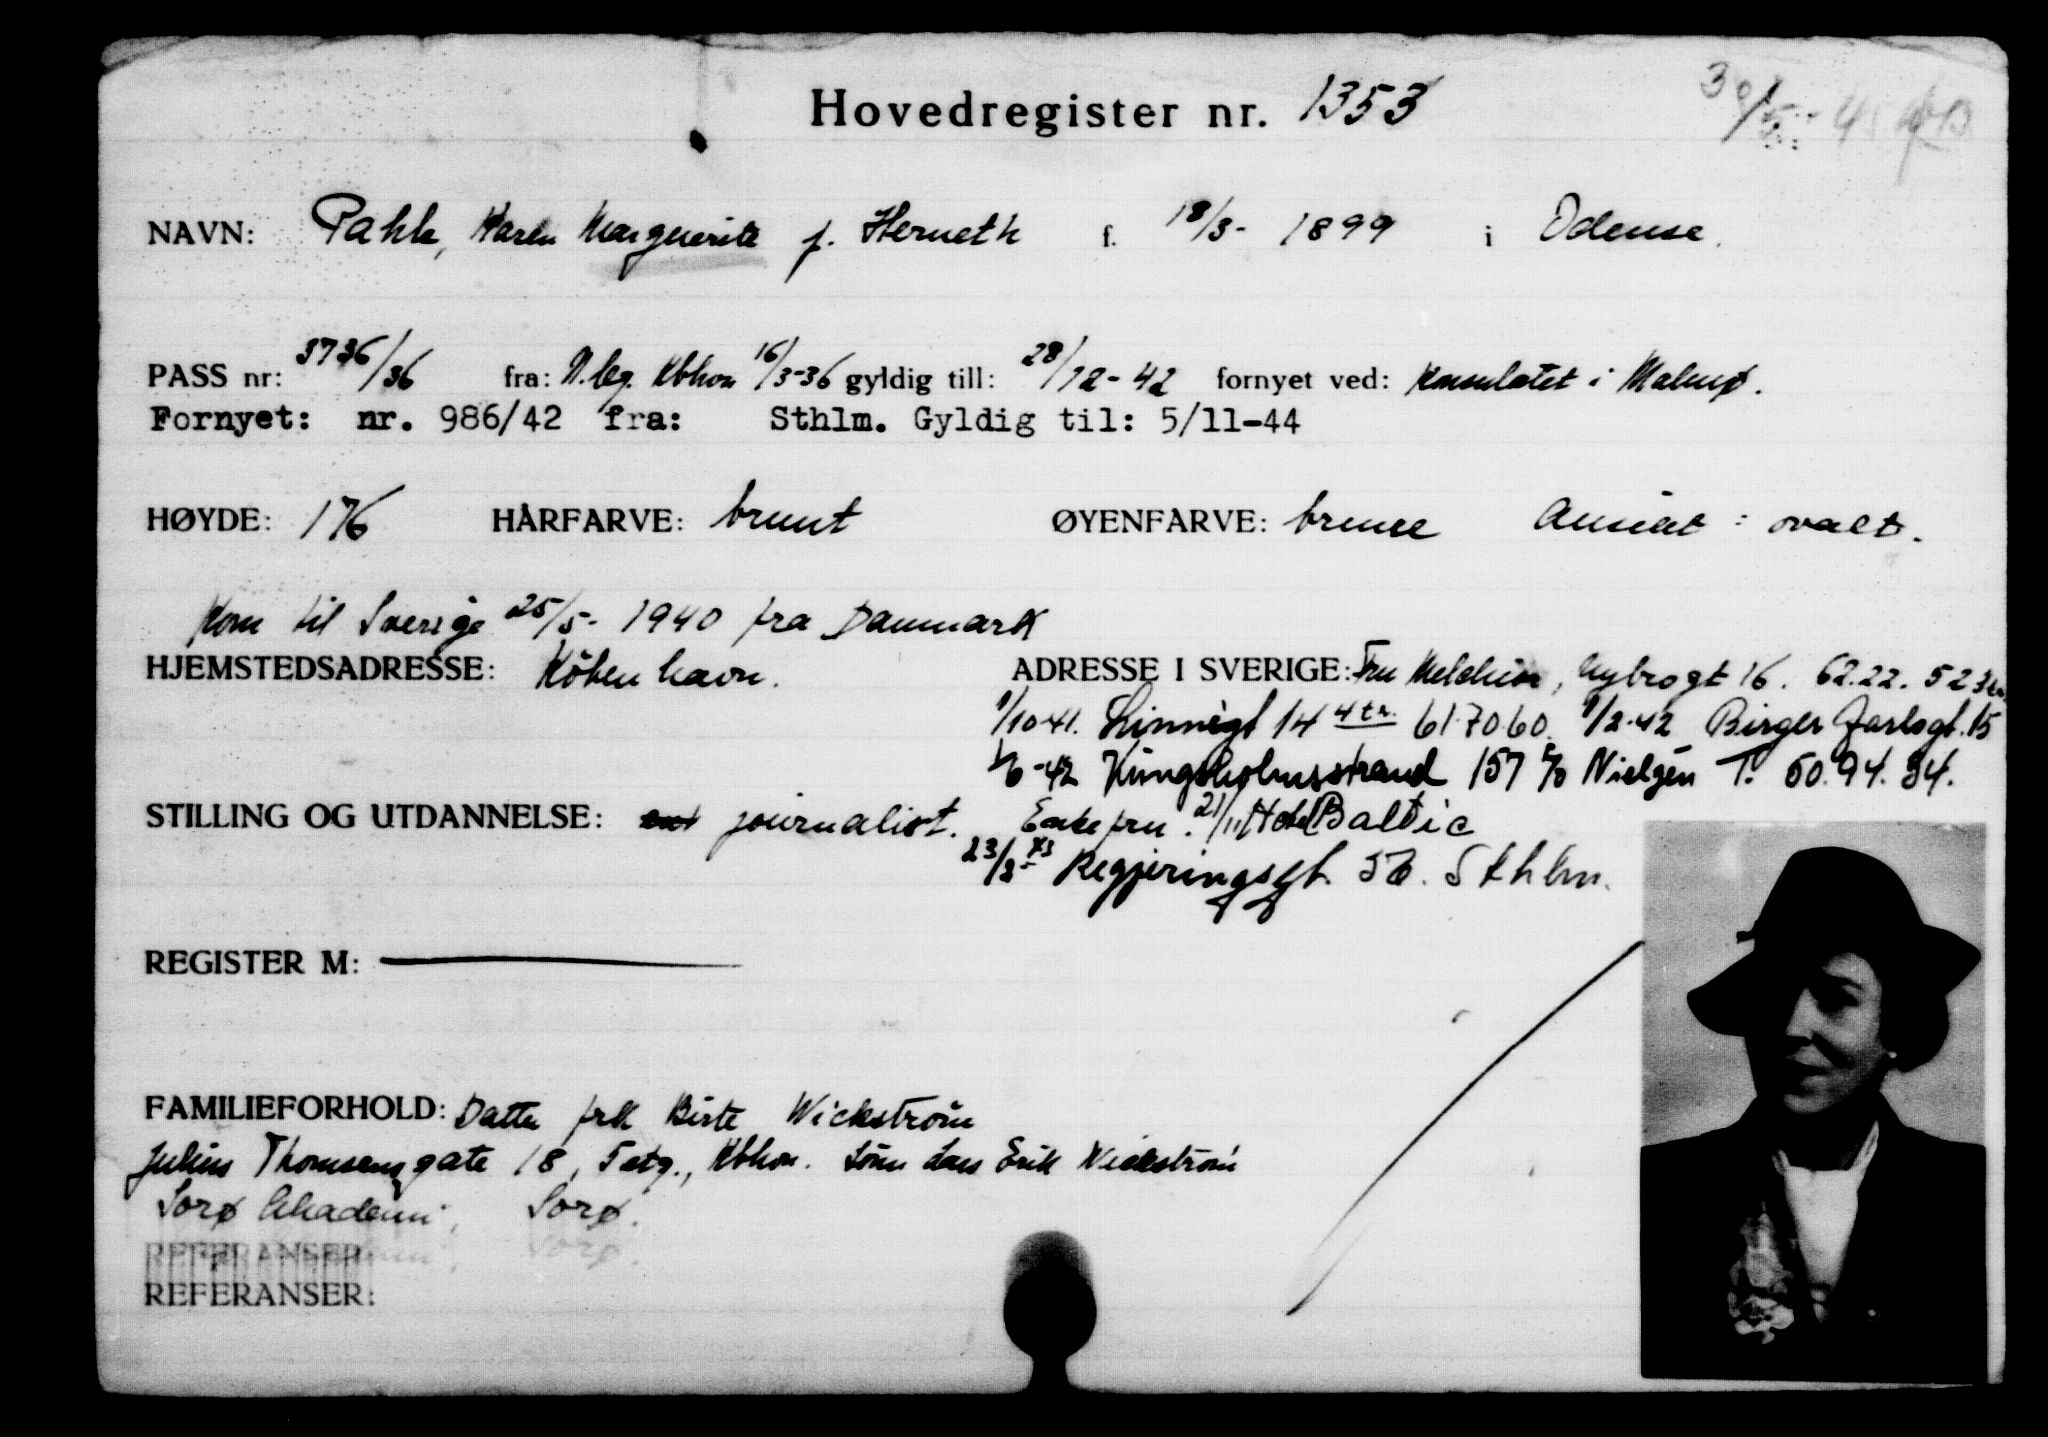 Hovedregister nr. 1353
30/5-45
NAVN: Pahle, Karen Marguerite f. Herneth f. 18/3- 1899 i Odense.
PASS nr: 3736/36 fra: N.leg. Kbhvn 16/3-36 gyldig till: 28/12-42 fornyet ved: Konsulatet i Malmø.
Fornyet: nr. 986/42 fra: Sthlm. Gyldig til: 5/11-44
HØYDE: 176 HÅRFARVE: brunt ØYENFARVE: brune Ansikt: ovalt.
Kom til Sverige 25/5- 1940 fra Danmark
HJEMSTEDSADRESSE: Köbenhavn. ADRESSE I SVERIGE: Fru Melchior, Nybrogt 16. 62.22.52 3tr.
1/10-41. Linnégt 14 4 tr. 61.70.60. 1/2-42 Birger Jarlsgt. 15
1/6-42 Kungsholmsstrand 157 c/o Nielsen T. 50.94.94.
STILLING OG UTDANNELSE: journalist. Enkefru. 21/11 Hotel Baltic
23/3-43 Regjeringsgt. 56. Sthlm.
REGISTER M:
FAMILIEFORHOLD: Datter frk Birte Wickström
Julius Thomsens gate 18, 5 etg., Kbhvn. Sönn Lars Erik Wickström
Sorø Akademi, Sorø.
REFERANSER:
REFERANSER: